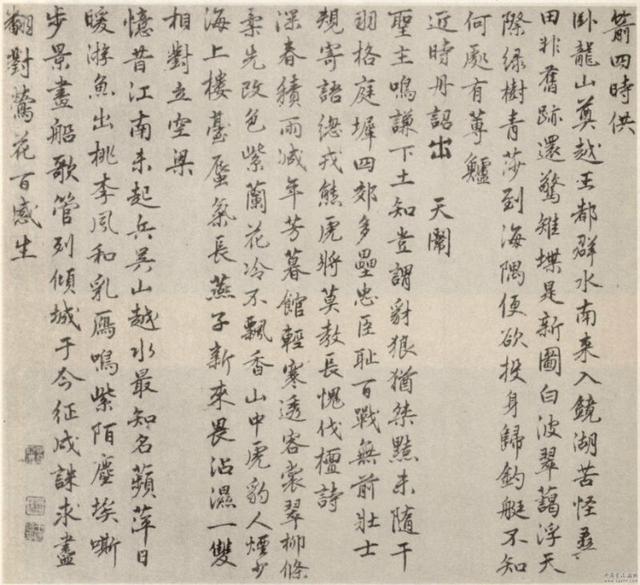 箭四時供
卧龍山奠越王都群水南来入鏡湖苦怪桑
田非舊跡還驚雉堞是新圖白波翠藹浮天
際緑樹青莎到海隅便欲投身歸釣艇不知
何處有蓴鱸
近時丹詔出 天闈
聖主鳴謙下土知豈謂豺狼猶桀黠未随干
羽格庭墀四郊多壘忠臣耻百戰無前壯士
規寄語總戎熊虎將莫教長愧伐檀詩
深春積雨減年芳暮館輕寒透客裳翠柳條
柔先改色紫蘭花冷不飄香山中虎豹人煙少
海上樓臺蜃氣長燕子新来畏沾濕一雙
相對立空梁
憶昔江南未起兵吳山越水最知名蘋萍日
暖游魚出桃李風和乳雁鳴紫陌塵埃嘶
步景畫船歌管列傾城于今征戍誅求盡
翻對鶯花百感生